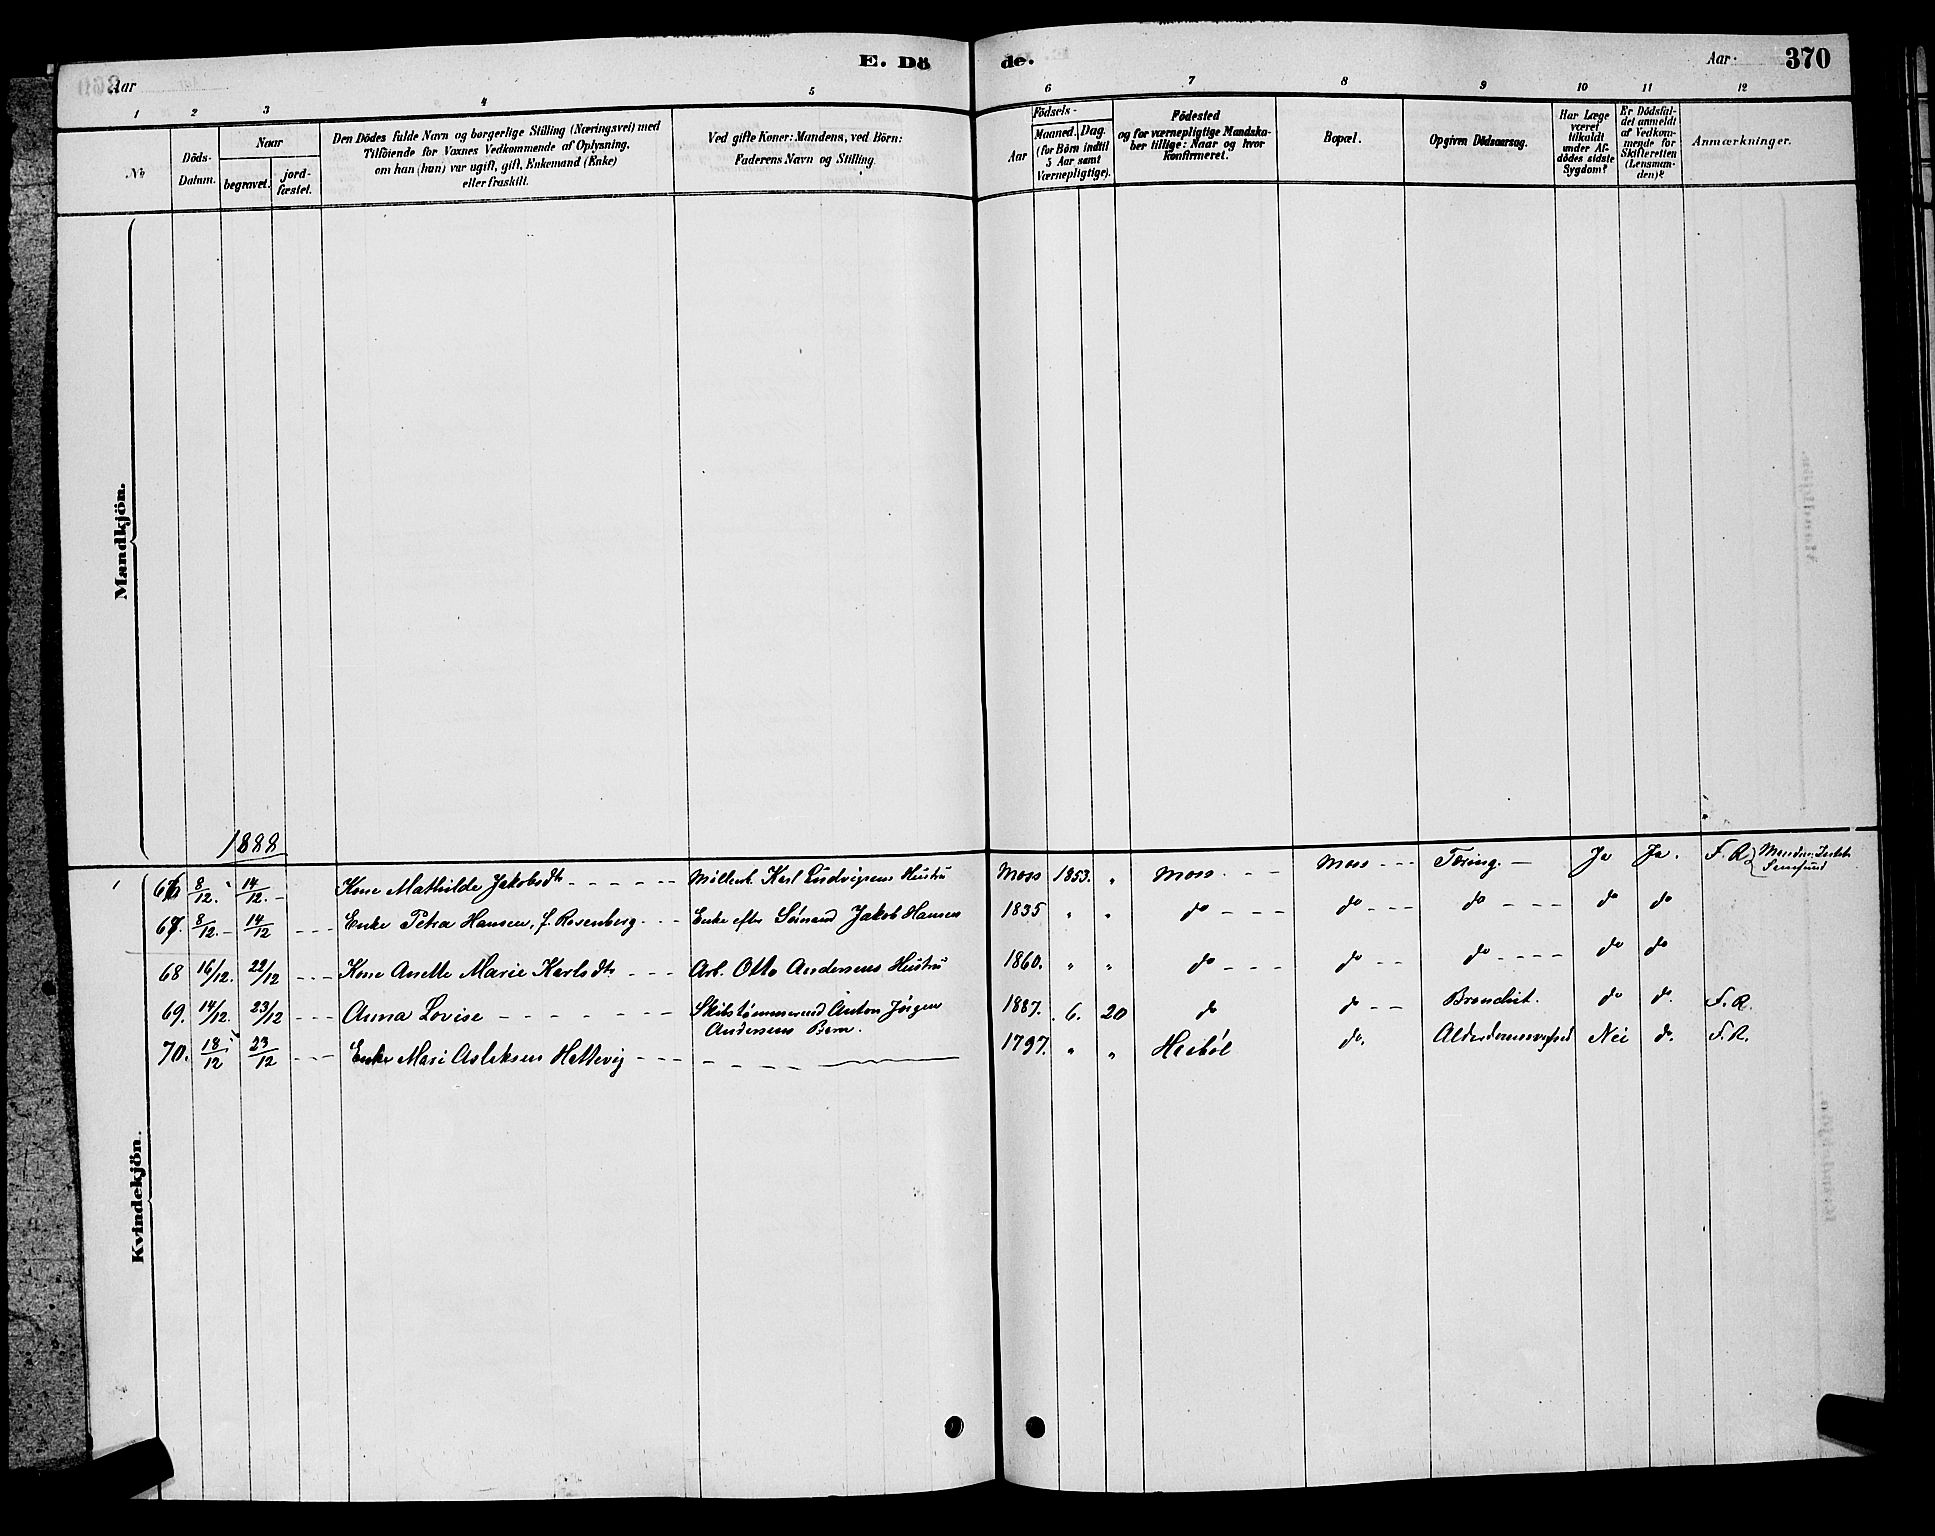 Aar
E. Dö
de.
Aar
370
1 2 3 4 5 6 7 8 9 10 11 12
No
Döds-
Datum.
Naar
begravet.
jord-
fæstet.
Den Dödes fulde Navn og borgerlige Stilling (Næringsvei) med
Tilföiende for Voxnes Vedkommende af Oplysning,
om han (hun) var ugift, gift, Enkemand (Enke)
eller fraskilt.
Ved gifte Koner: Mandens, ved Börn:
Faderens Navn og Stilling.
Födsels-
Aar
Maaned.
Dag.
(for Börn indtil
5 Aar samt
Værnepligtige).
Födested
og for værnepligtige Mandska-
ber tillige: Naar og hvor
konfirmeret.
Bopæl.
Opgiven Dödsaarsag.
Har Læge
været
tilkaldt
under Af-
dödes sidste
Sygdom?
Er Dödsfal-
det anmeldt
af Vedkom-
mende for
Skifteretten
(Lensman-
den)?
Anmærkninger.
Mandkjön.
1888
66 8/12. 14/12. Kone Mathilde Jakobsdtr Möllerb. Karl Ludvigsens Hustru Moss 1853. " Moss Moss Tæring. Ja Ja. F. R
67. 8/12. 14/12 Enke Petra Hansen, f. Rosenberg Enke efter Sömand Jakob Hansen 1835 " " do do do do do
68 16/12. 22/12 Kone Anette Marie Karlsdtr Arb. Otto Andersens Hustru 1860. " " do do do do do
69. 14/12. 23/12 Anna Lovise Skibstømmermd Anton Jörgen
Andersens Barn. 1887. 6. 20 do do Bronchit. do do. F. R.
70. 18/12 23/12 Enke Mari Aslaksen Hettevig 1797. " " Hebøl do. Alderdomssvaghed Nei do. F. R.
Kvindekjön.